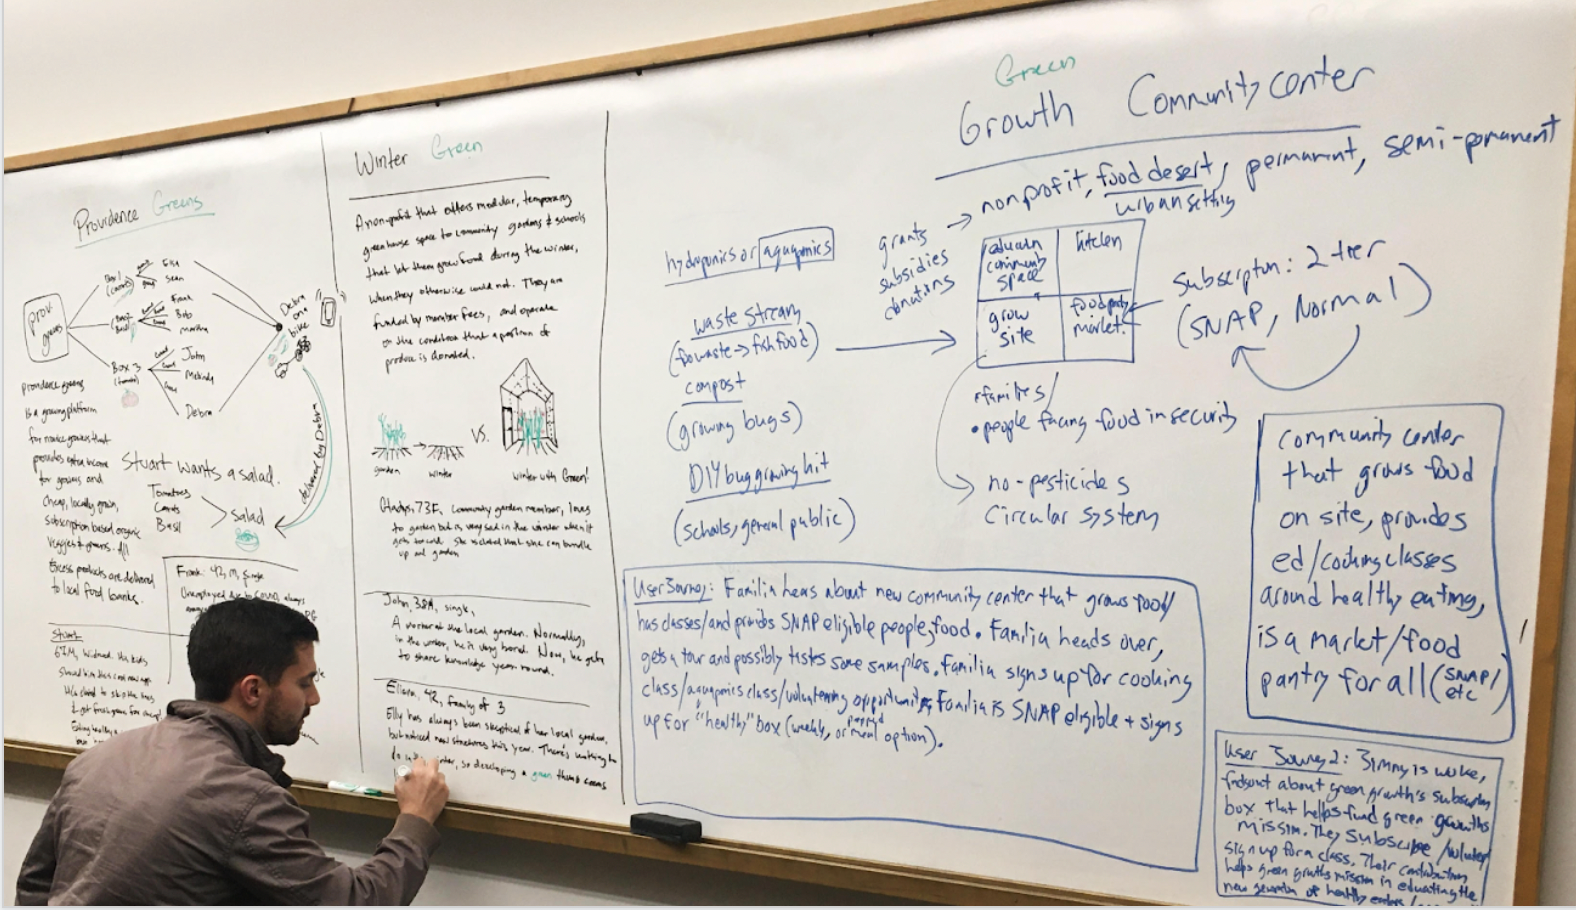 Providence Greens
prov. greens
Box 1
(carrots)
Ella
Sean
Box 2
(Basil)
Frank
Bob
Martha
Box 3
(tomato)
John
Melinda
Debra
Debra
on
bike
delivered by Debra
providence greens
is a growing platform
for novice growers that
provides extra income
for growers and
cheap, locally grown,
subscription based organic
veggies & greens. All
Excess products are delivered
to local food banks.
Stuart wants a salad.
Tomatoes
Carrots
Basil
Salad
Frank: 42, M, Single
Unemployed due to COVID, always
Stuart
67M, Widowed. His kids
showed him this cool new app
Eating healthy
Winter Green
A non-profit that offers modular, temporary
greenhouse space to community gardens & schools
that let them grow food during the winter,
when they otherwise could not. They are
funded by member fees, and operate
on the condition that a portion of
produce is donated.
garden
winter
VS.
winter with Green!
Gladys, 73F. Community garden member, loves
to garden but is very sad in the winter when it
gets too cold. She is elated that she can bundle
up and garden
John, 38M, single,
A worker at the local garden. Normally,
in the winter, he is very bored. Now, he gets
to share knowledge year round.
Eliana, 42, family of 3
Elly has always been skeptical of her local garden,
but noticed new structures this year. There's nothing to
do in winter, so developing a green thumb seems
Green
Growth Community center
nonprofit, food desert, permanent, semi-permanent
urban setting
grants
subsidies
donations
hydroponics or aquaponics
waste stream
(fo waste → fish food)
compost
(growing bugs)
DIY bug growing kit
(schools, general public)
education
community
space
kitchen
grow
site
food pantry
market
subscription: 2 tier
(SNAP, Normal)
• families/
• people facing food insecurity
no-pesticides
Circular system
User Journey: Familia hears about new community center that grows food/
has classes/and provides SNAP eligible people, food. Familia heads over,
gets a tour and possibly tastes some samples. Familia signs up for cooking
class/aquaponics class/volunteering opportunities, Familia is SNAP eligible + signs
up for "healthy" box (weekly, or prepared meal option).
community center
that grows food
on site, provides
ed/cooking classes
around healthy eating,
is a market/food
pantry for all (SNAP/
etc)
User Journey 2: Jimmy is woke,
finds out about green growth's subscription
box that helps fund green growths
mission. They subscribe/volunteer
sign up for a class. Their contribution
helps green growths mission in educating the
new generation of healthy eaters/